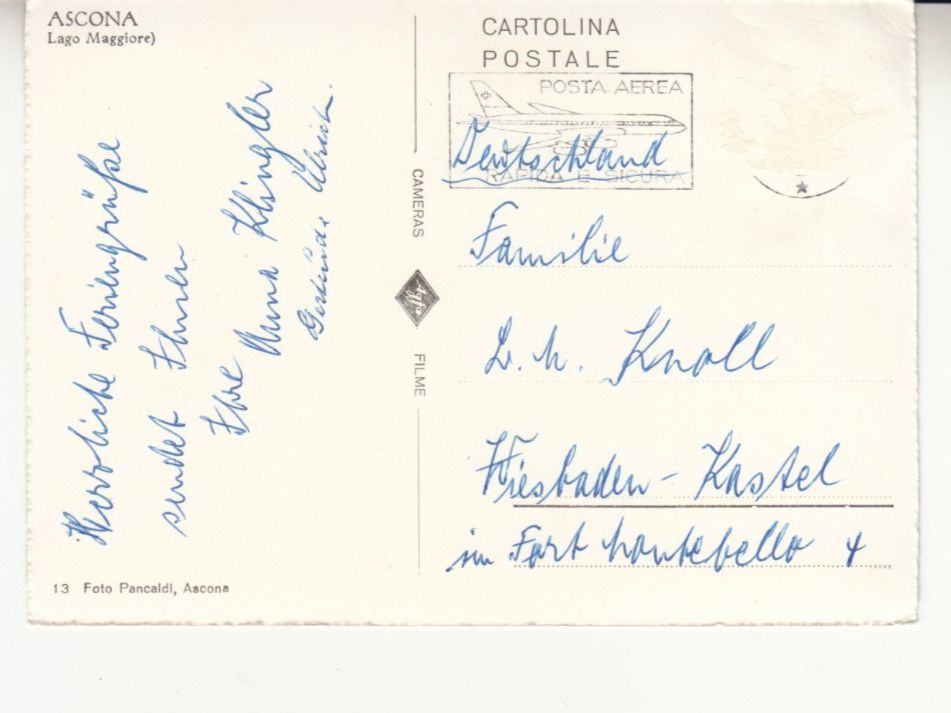 ASCONA
Lago Maggiore)
Herzliche Feriengrüße
sendet Ihnen
Ihre Anna Klingler
Ulrich.
13 Foto Pancaldi, Ascona
CAMERAS
Agfa
FILME
CARTOLINA
POSTALE
POSTA AEREA
RAPIDA E SICURA
Deutschland
Familie
L. h. Knoll
Wiesbaden - Kastel
im Fort Montebello 4